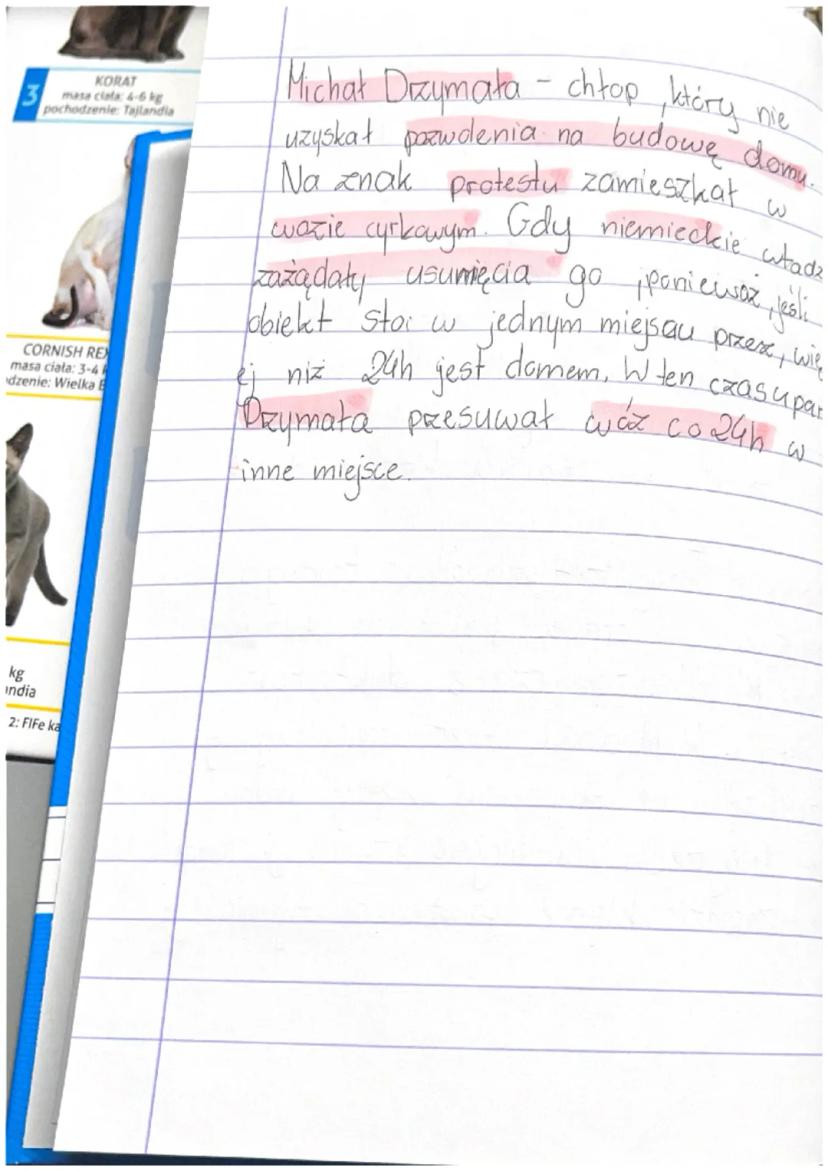 3
KORAT
masa ciała: 4-6 kg
pochodzenie: Tajlandia
CORNISH REX
masa ciała: 3-4 k
dzenie: Wielka B
kg
andia
2: FIFe ka
Michał Drzymała – chłop, który nie
uzyskał pozwolenia na budowę domu.
Na znak protestu zamieszkał w
wozie cyrkowym. Gdy niemieckie władz
zażądały usunięcia go, ponieważ, jeśli
obiekt stoi w jednym miejscu przez, wię
ej niż 24h jest domem. W ten czas upar
Drzymała przesuwał wóz co 24h w
inne miejsce.